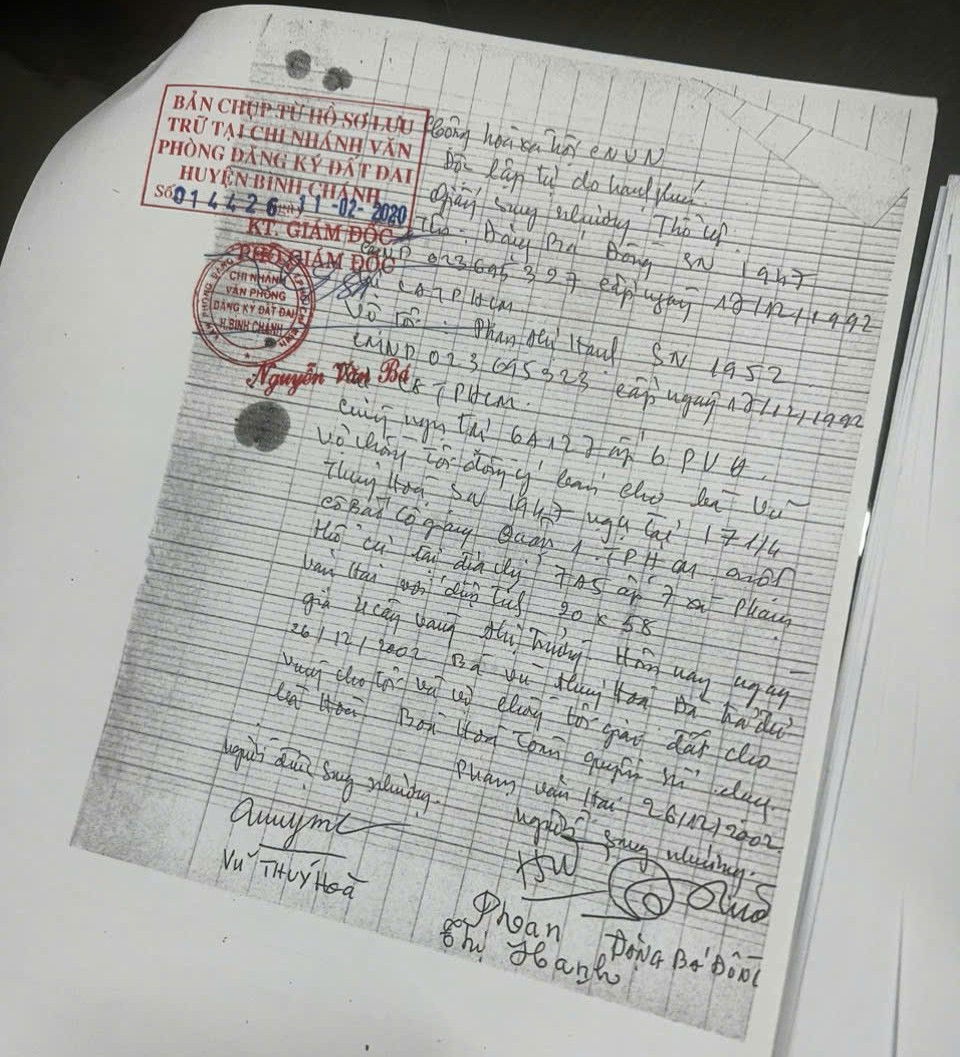 BẢN CHỤP TỪ HỒ SƠ LƯU
TRỮ TẠI CHI NHÁNH VĂN
PHÒNG ĐĂNG KÝ ĐẤT ĐAI
HUYỆN BÌNH CHÁNH
Số 014426 11-02-2020
KT. GIÁM ĐỐC
PHÓ GIÁM ĐỐC
CHI NHÁNH
VĂN PHÒNG
ĐĂNG KÝ ĐẤT ĐAI
H.BÌNH CHÁNH
Nguyễn Văn Bá
Cộng hoà xã hội CNVN
Độc lập tự do
Giấy sang nhường Thổ cư
Đồng Bá Đông SN 1947
CMND 023695327 cấp ngày 17/12/1992
CATPHCM
Vợ tôi: Phan thị Hanh SN 1952
CMND 023695323 cấp ngày 17/12/1992
TPHCM.
cùng ngụ tại 6A127 ấp 6 PVH
Vợ chồng tôi đồng ý bán cho bà Vũ
Thuý Hoà SN 1947 ngụ tại 171/4
cô Bắc cô giang Quận 1 TPHCM
Thổ cư tại địa chỉ 7A5 ấp 7 xã Phạm
Văn Hai với diện tích 20 x 58
giá cây vàng thị trường. Hôm nay ngày
26/12/2002 Bà Vũ thuý Hoà Đã trả đủ
vàng cho tôi và vợ chồng tôi giao đất cho
bà Hoà Hoà toàn quyền sử dụng.
Phạm văn Hai 26/12/2002
Người được sang nhường.
Người sang nhường.
Vũ THUÝ HOÀ
Phan Thị Hanh
ĐỒNG BÁ ĐÔNG